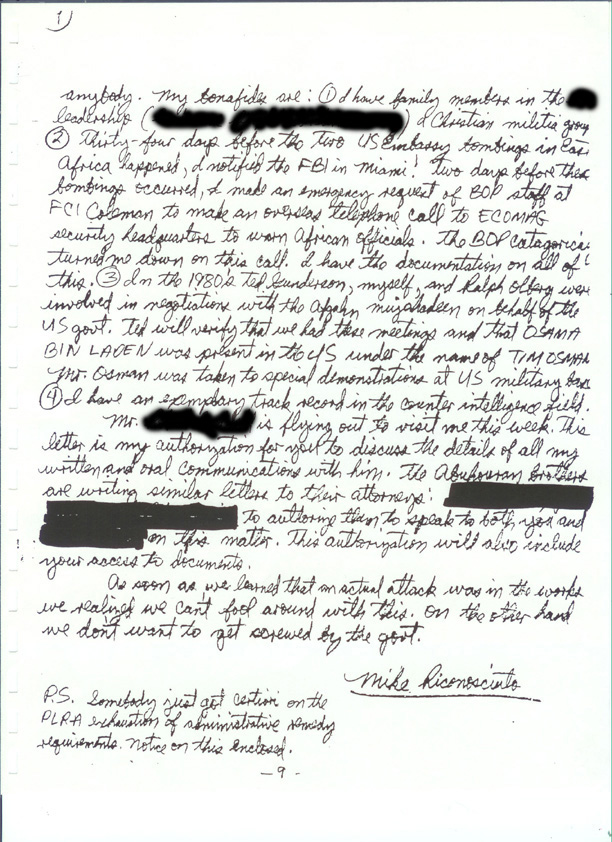 1)
anybody. My bonafides are: ① I have family members in the
leadership ( ) of Christian militia group
② Thirty-four days before the two US Embassy bombings in East
Africa happened, I notified the FBI in Miami! Two days before these
bombings occurred, I made an emergency request of BOP staff at
FCI Coleman to make an overseas telephone call to ECOMAG
security headquarters to warn African officials. The BOP catagorical
turned me down on this call. I have the documentation on all of
this. ③ In the 1980s Ted Gunderson, myself, and Ralph Olberg were
involved in negotiations with the Afgahn mujahadeen on behalf of the
US govt. Ted will verify that we had these meetings and that OSAMA
BIN LADEN was present in the US under the name of TIM OSMAN
Mr. Osman was taken to special demonstrations at US military bas
④ I have an exemplary track record in the counter intelligence field.
Mr. is flying out to visit me this week. This
letter is my authorization for you to discuss the details of all my
written and oral communications with him. The Abuhouran brothers
are writing similar letters to their attorneys:
to authorize them to speak to both you and
on this matter. This authorization will also include
your access to documents.
As soon as we learned that an actual attack was in the works
we realized we can't fool around with this. On the other hand
we don't want to get screwed by the govt.
Mike Riconosciuto
P.S. Somebody just got certiori on the
PLRA exhaustion of administrative remedy
requirements. Notice on this enclosed.
-9-